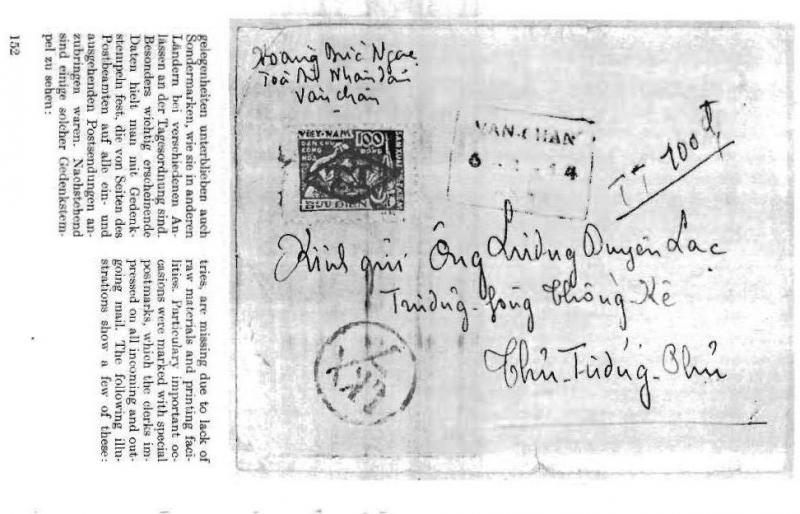 gelegenheiten unterblieben auch
Sondermarken, wie sie in anderen
Ländern bei verschiedenen An-
lässen an der Tagesordnung sind.
Besonders wichtig erscheinende
Daten hielt man mit Gedenk-
stempeln fest, die von Seiten des
Postbeamten auf alle ein- und
ausgehenden Postsendungen an-
zubringen waren. Nachstehend
sind einige solcher Gedenkstem-
pel zu sehen:
tries, are missing due to lack of
raw materials and printing faci-
lities. Particulary important oc-
casions were marked with special
postmarks, which the clerks im-
pressed on all incoming and out-
going mail. The following illu-
strations show a few of these:
152
Hoang Đức Ngọc
Toà Án Nhân dân
Văn chấn
VIET-NAM
100
DAN CHU
CONG
HOA
BUU DIEN
VAN-CHAN
TT 700đ
Kính gửi Ông Lương Duyên Lạc
Trưởng-phòng Thống Kê
Thủ-Tướng-Phủ